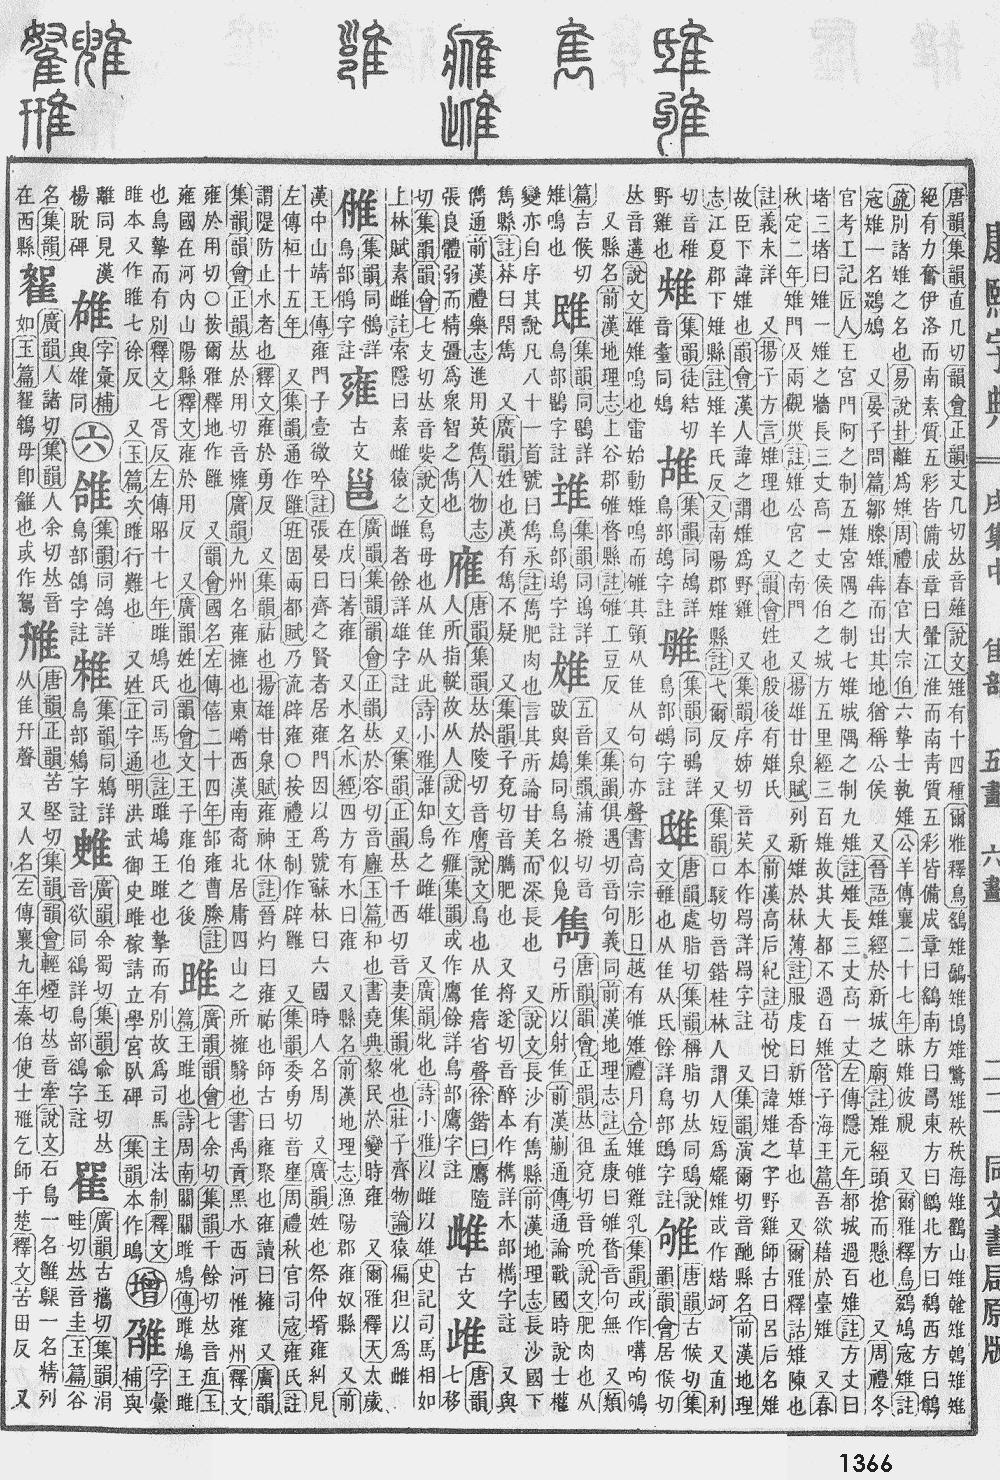 康熙字典 戌集中 隹部 五畫 六畫 二二 同文書局原版
唐韻集韻直几切韻會正韻丈几切𠀤音薙說文雉有十四種爾雅釋鳥鷂雉鷮雉鳪雉鷩雉秩秩海雉鸐山雉雗雉鵫雉雉
絕有力奮伊洛而南素質五彩皆備成章曰翬江淮而南靑質五彩皆備成章曰鷂南方曰𢏚東方曰鶅北方曰鵗西方曰鷷
疏別諸雉之名也易說卦離爲雉周禮春官大宗伯六摯士執雉公羊傳襄二十七年昧雉彼視 又爾雅釋鳥鷑鳩寇雉註
寇雉一名鷑鳩 又晏子問篇鄒滕雉犇而出其地猶稱公侯 又晉語雉經於新城之廟註雉經頭搶而懸也 又周禮冬
官考工記匠人王宮門阿之制五雉宮隅之制七雉城隅之制九雉註雉長三丈高一丈左傳隱元年都城過百雉註方丈曰
堵三堵曰雉一雉之牆長三丈高一丈侯伯之城方五里經三百雉故其大都不過百雉管子海王篇吾欲藉於臺雉 又春
秋定二年雉門及兩觀災註雉公宮之南門 又揚雄甘泉賦列新雉於林薄註服虔曰新雉香草也 又爾雅釋詁雉陳也
註義未詳 又揚子方言雉理也 又韻會姓也殷後有雉氏 又前漢高后紀註荀悅曰諱雉之字野雞師古曰呂后名雉
故臣下諱雉也韻會漢人諱之謂雉爲野雞 又集韻序姊切音兕本作𤉡詳𤉡字註 又集韻演爾切音酏縣名前漢地理
志江夏郡下雉縣註雉羊氏反又南陽郡雉縣註弋爾反 又集韻口駭切音鍇桂林人謂人短爲矲雉或作㾶𡛕 又直利
切音稚
野雞也
䧺
集韻徒結切
音耋同鴩
𨾦
集韻同鴣詳
鳥部鴣字註
𨿅
集韻同鴟詳
鳥部鴟字註
雎
唐韻處脂切集韻稱脂切𠀤同鴟說
文雖也从隹从氐餘詳鳥部鴟字註
雊
唐韻古候切集
韻韻會居候切
𠀤音遘說文雄雉鳴也雷始動雉鳴而雊其頭从隹从句句亦聲書高宗肜日越有雊雉禮月令雉雊雞乳集韻或作呴鴝
又縣名前漢地理志上谷郡雊瞀縣註雊工豆反 又集韻俱遇切音句義同前漢地理志註孟康曰雊瞀音句無 又類
篇吉候切
雉鳴也
集韻同鵖詳
鳥部鵖字註
集韻同鴋詳
鳥部鴋字註
五音集韻蒲撥切音
跋與鴔同鳥名似鳧
雋
唐韻集韻韻會正韻𠀤徂兗切音吮說文肥肉也从
弓所以射隹前漢蒯通傳通論戰國時說士權
變亦自序其說凡八十一首號曰雋永註雋肥肉也言其所論甘美而深長也 又說文長沙有雋縣前漢地理志長沙國下
雋縣註莽曰閏雋 又廣韻姓也漢有雋不疑 又集韻子兗切音臇肥也 又將遂切音醉本作檇詳木部檇字註 又與
儁通前漢禮樂志進用英雋人物志
張良體弱而精彊爲衆智之雋也
䧹
唐韻集韻𠀤於陵切音膺說文鳥也从隹瘖省聲徐鍇曰鷹隨
人所指䡮故从人說文作𤸰集韻或作鷹餘詳鳥部鷹字註
雌
古文
𨾴
唐韻
七移
切集韻韻會七支切𠀤音𤿎說文鳥母也从隹从此詩小雅誰知鳥之雌雄 又廣韻牝也詩小雅以雌以雄史記司馬相如
上林賦素雌註索隱曰素雌猿之雌者餘詳雄字註 又集韻正韻𠀤千西切音妻集韻牝也莊子齊物論猿猵狙以爲雌
集韻同鵂詳
鳥部鵂字註
雍
古文
邕
廣韻集韻韻會正韻𠀤於容切音廱玉篇和也書堯典黎民於變時雍 又爾雅釋天太歲
在戊曰著雍 又水名水經四方有水曰雍 又縣名前漢地理志漁陽郡雍奴縣 又前
漢中山靖王傳雍門子壹微吟註張晏曰齊之賢者居雍門因以爲號蘇林曰六國時人名周 又廣韻姓也祭仲壻雍糾見
左傳桓十五年 又集韻通作雝班固兩都賦乃流辟雍○按禮王制作辟雝 又集韻委勇切音壅周禮秋官司寇雍氏註
謂隄防止水者也釋文雍於勇反 又集韻祐也揚雄甘泉賦雍神休註晉灼曰雍祐也師古曰雍聚也雍讀曰擁 又廣韻
集韻韻會正韻𠀤於用切音擁廣韻九州名雍擁也東崤西漢南裔北居庸四山之所擁翳也書禹貢黑水西河惟雍州釋文
雍於用切○按爾雅釋地作雝 又韻會國名左傳僖二十四年郜雍曹滕註
雍國在河內山陽縣釋文雍於用反 又廣韻姓也韻會文王子雍伯之後
雎
廣韻韻會七余切集韻千餘切𠀤音疽玉
篇王雎也詩周南關關雎鳩傳雎鳩王雎
也鳥摯而有別釋文七胥反左傳昭十七年雎鳩氏司馬也註雎鳩王雎也摯而有別故爲司馬主法制釋文
雎本又作𨾊七徐反 又玉篇次雎行難也 又姓正字通明洪武御史雎稼請立學宮臥碑 集韻本作鴡
增
𨿜
字彙
補與
離同見漢
楊耽碑
䧺
字彙補
與雄同
六
𨾚
集韻同鴿詳
鳥部鴿字註
集韻同鴸詳
鳥部鴸字註
廣韻余蜀切集韻兪玉切𠀤
音欲同鵒詳鳥部鵒字註
廣韻古攜切集韻涓
畦切𠀤音圭玉篇谷
名集韻
在西縣
䎟
廣韻人諸切集韻人余切𠀤音
如玉篇䎟鶴母卽䨄也或作鴽
雃
唐韻正韻苦堅切集韻韻會輕煙切𠀤音牽說文石鳥一名雝𪆫一名精列
从隹幵聲 又人名左傳襄九年秦伯使士雃乞師于楚釋文苦田反 又
1366